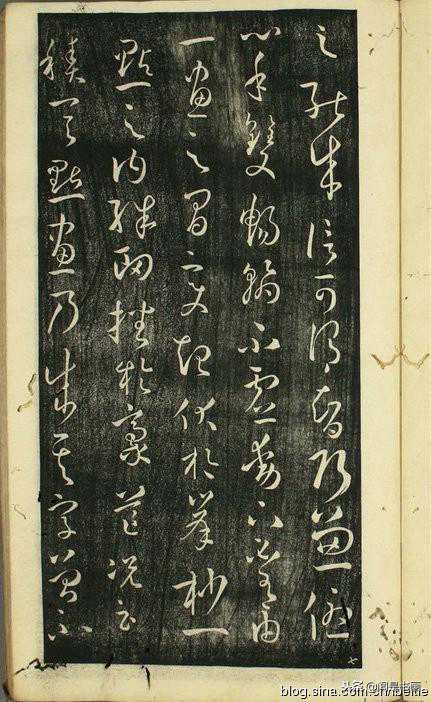 之能成信可謂智巧兼優
心手雙暢翰不虛動下必有由
一畫之間變起伏於峯杪一
點之內殊衄挫於豪芒況云
積其點畫乃成其字曾不
七
头条@闻是书画
blog.sina.com.cn/beitie